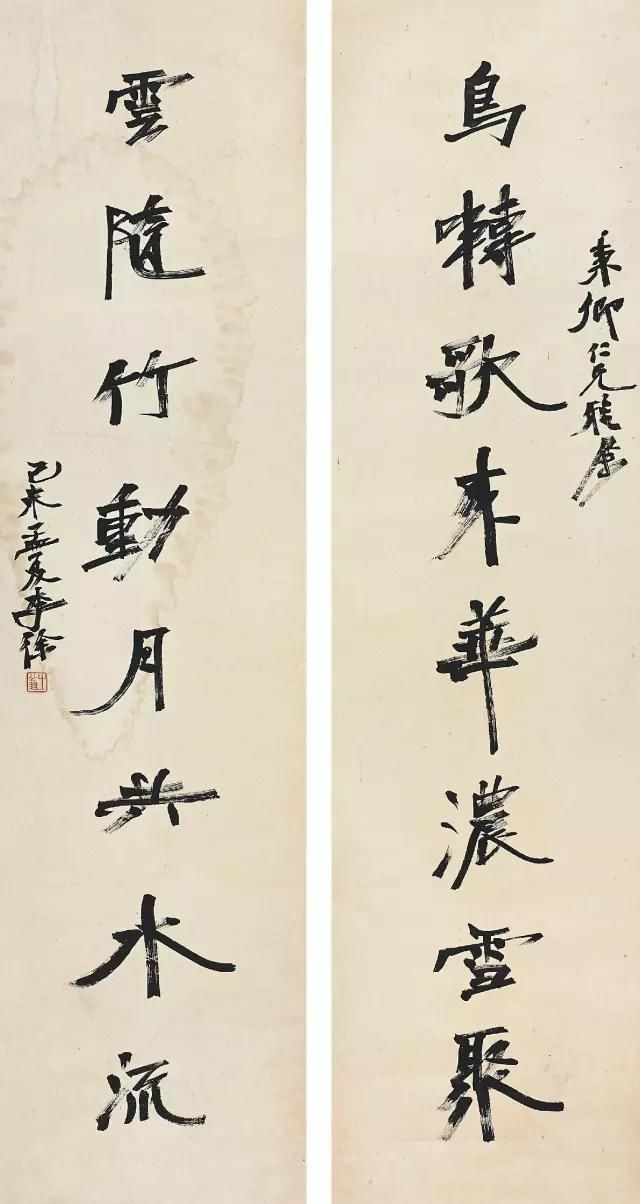 秉仰仁兄雅屬
鳥囀歌來華濃雪聚
雲隨竹動月共水流
己未孟夏李徐